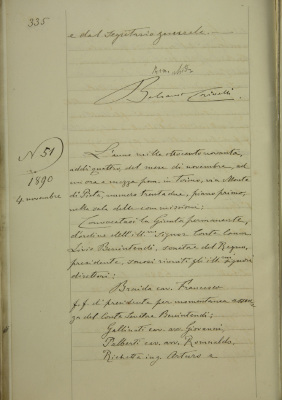 335
e dal segretario generale. —
N° 51
1890
4 novembre
L'anno mille ottocento novanta,
addì quattro, del mese di novembre, ad
un'ora e mezza pom. in Torino, via Monte
di Pietà, numero trentadue, piano primo,
nella sala delle commissioni;
Convocatasi la Giunta permanente,
d'ordine dell'Ill.mo Signor Conte Comm.
Livio Benintendi, senatore del Regno,
presidente, sonosi riuniti gli Ill.mi Signori
direttori:
Braida cav. Francesco
f.f. di presidente per momentanea assen-
za del Conte Senatore Benintendi;
Gallinati cav. avv. Giovanni,
Palberti cav. avv. Romualdo,
Ricchetta ing. Arturo e